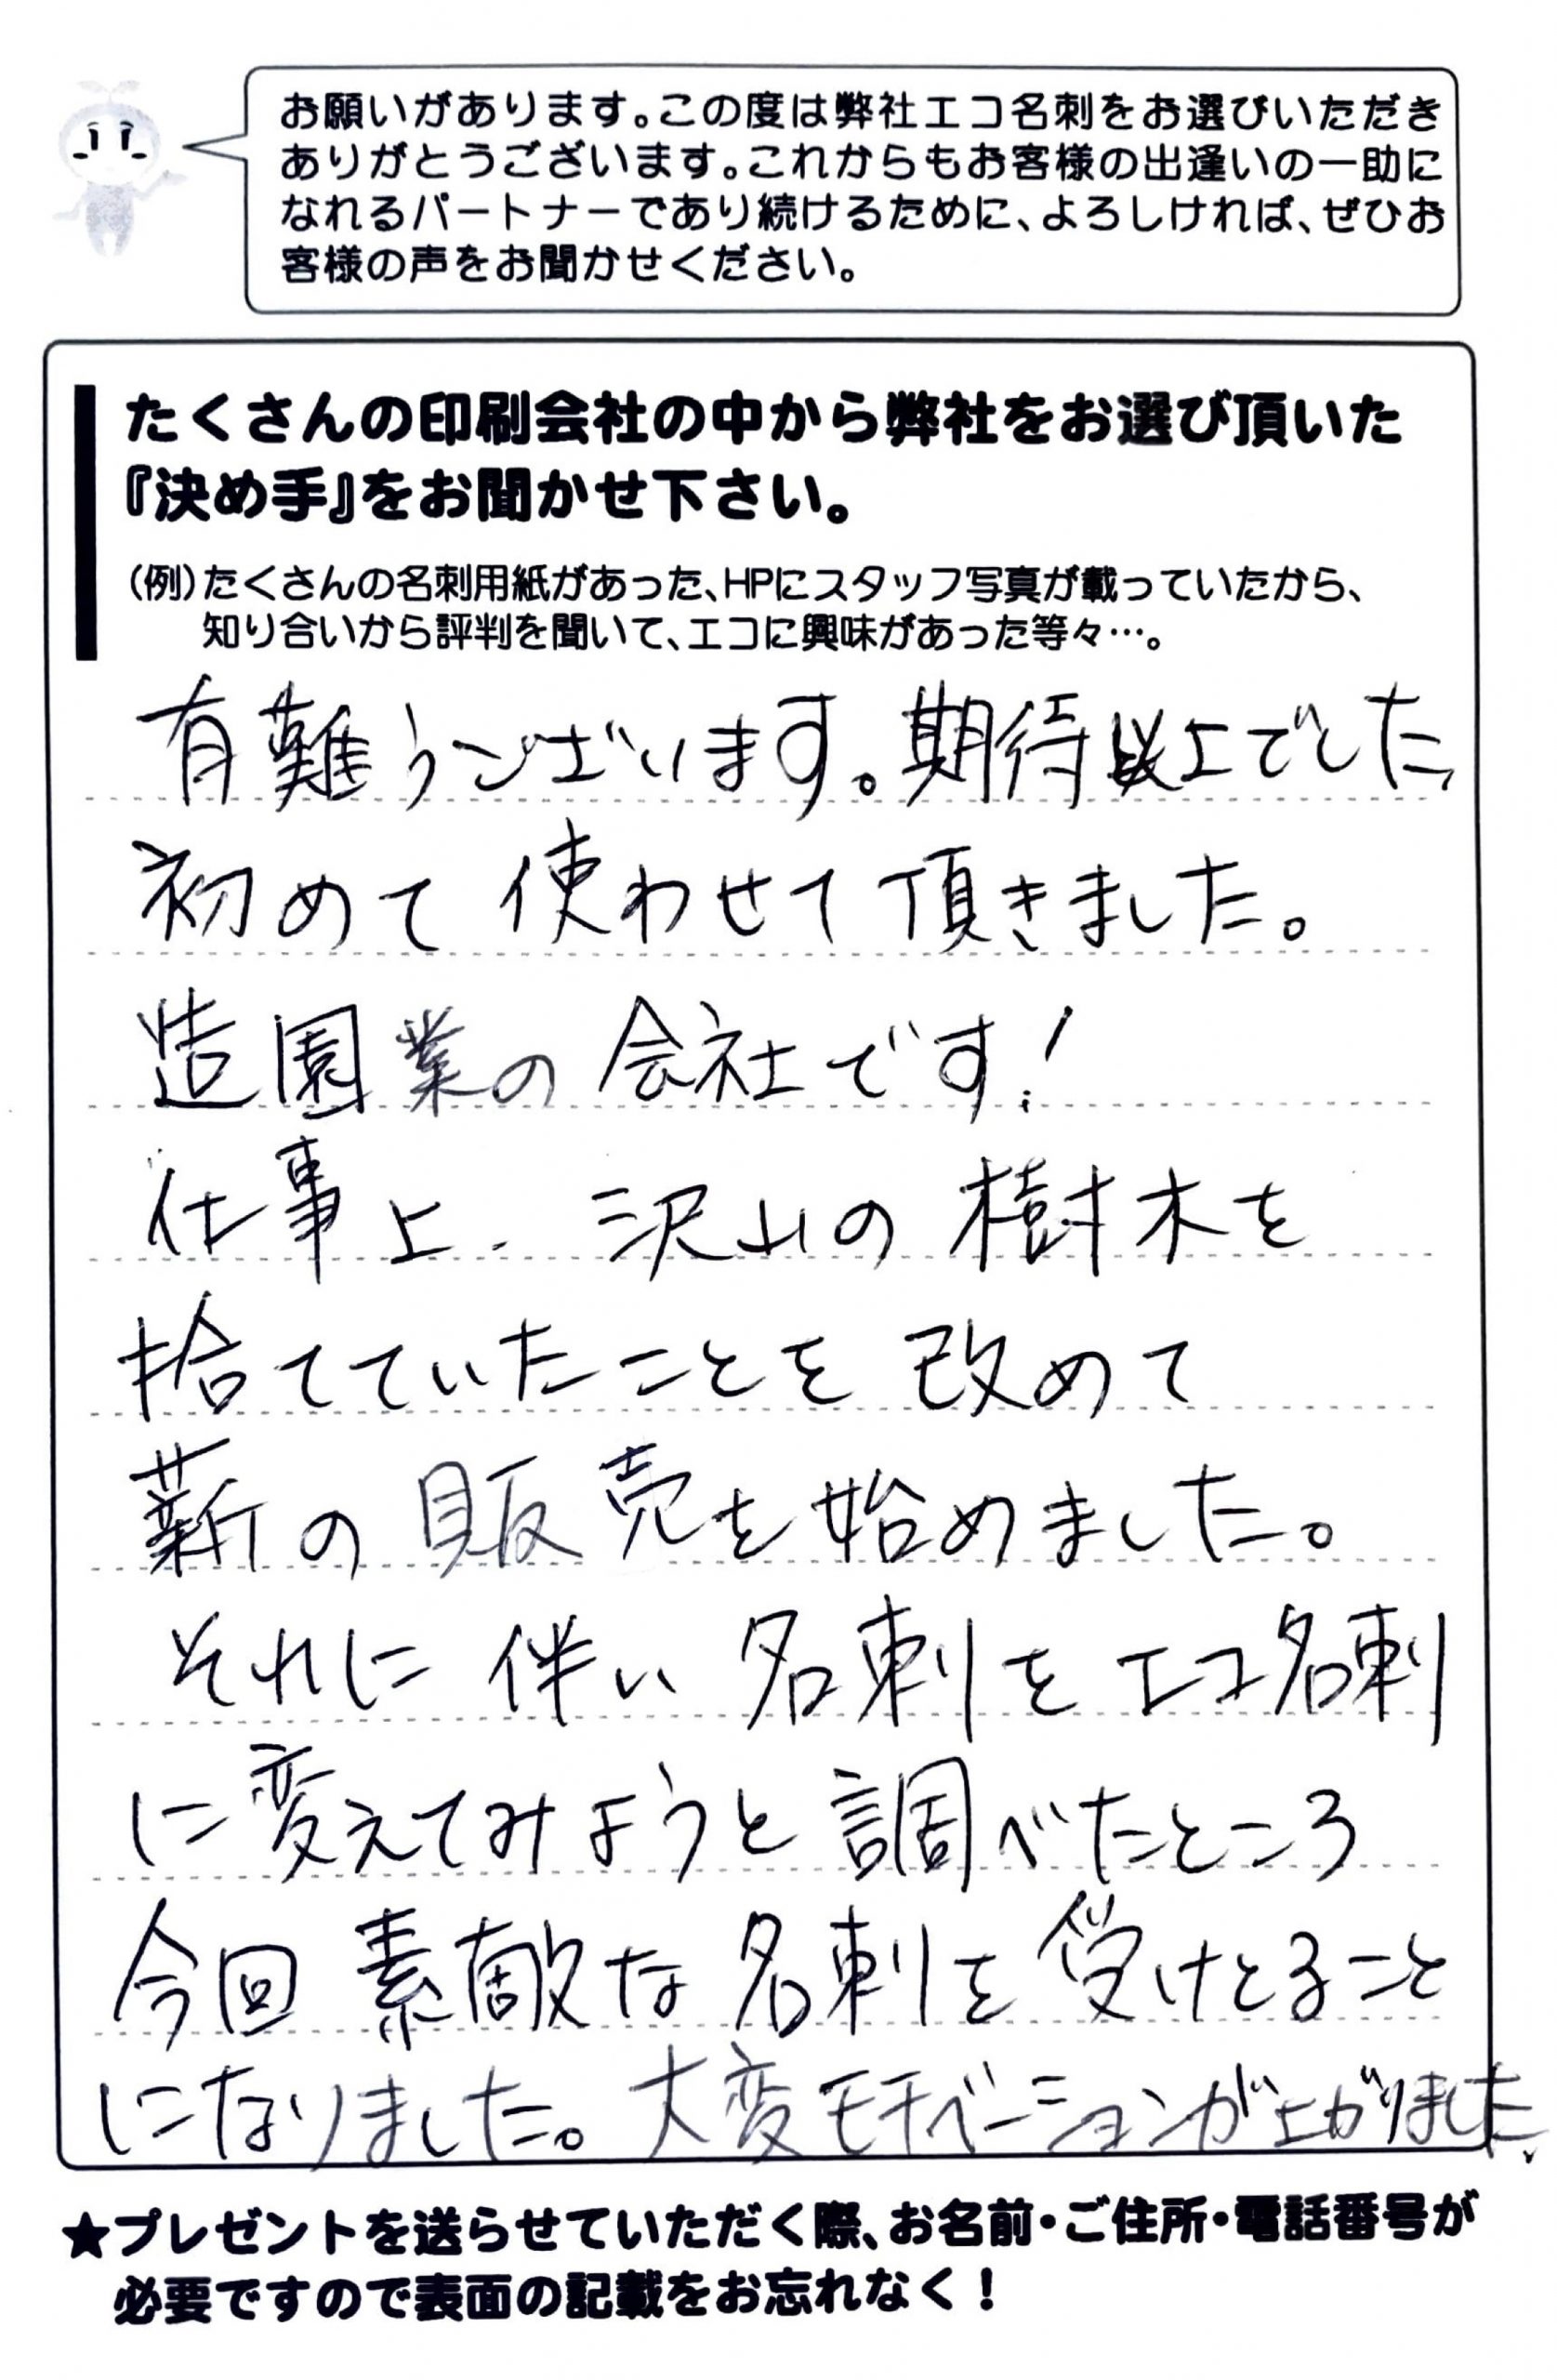 お願いがあります。この度は弊社エコ名刺をお選びいただき
ありがとうございます。これからもお客様の出逢いの一助に
なれるパートナーであり続けるために、よろしければ、ぜひお
客様の声をお聞かせください。
たくさんの印刷会社の中から弊社をお選び頂いた
『決め手』をお聞かせ下さい。
(例)たくさんの名刺用紙があった、HPにスタッフ写真が載っていたから、
知り合いから評判を聞いて、エコに興味があった等々…。
有難うございます。期待以上でした、
初めて使わせて頂きました。
造園業の会社です!
仕事上、沢山の樹木を
捨てていたことを改めて
薪の販売を始めました。
それに伴い名刺をエコ名刺
に変えてみようと調べたところ
今回素敵な名刺を受けとること
になりました。大変モチベーションが上がりました、
★プレゼントを送らせていただく際、お名前・ご住所・電話番号が
必要ですので表面の記載をお忘れなく!